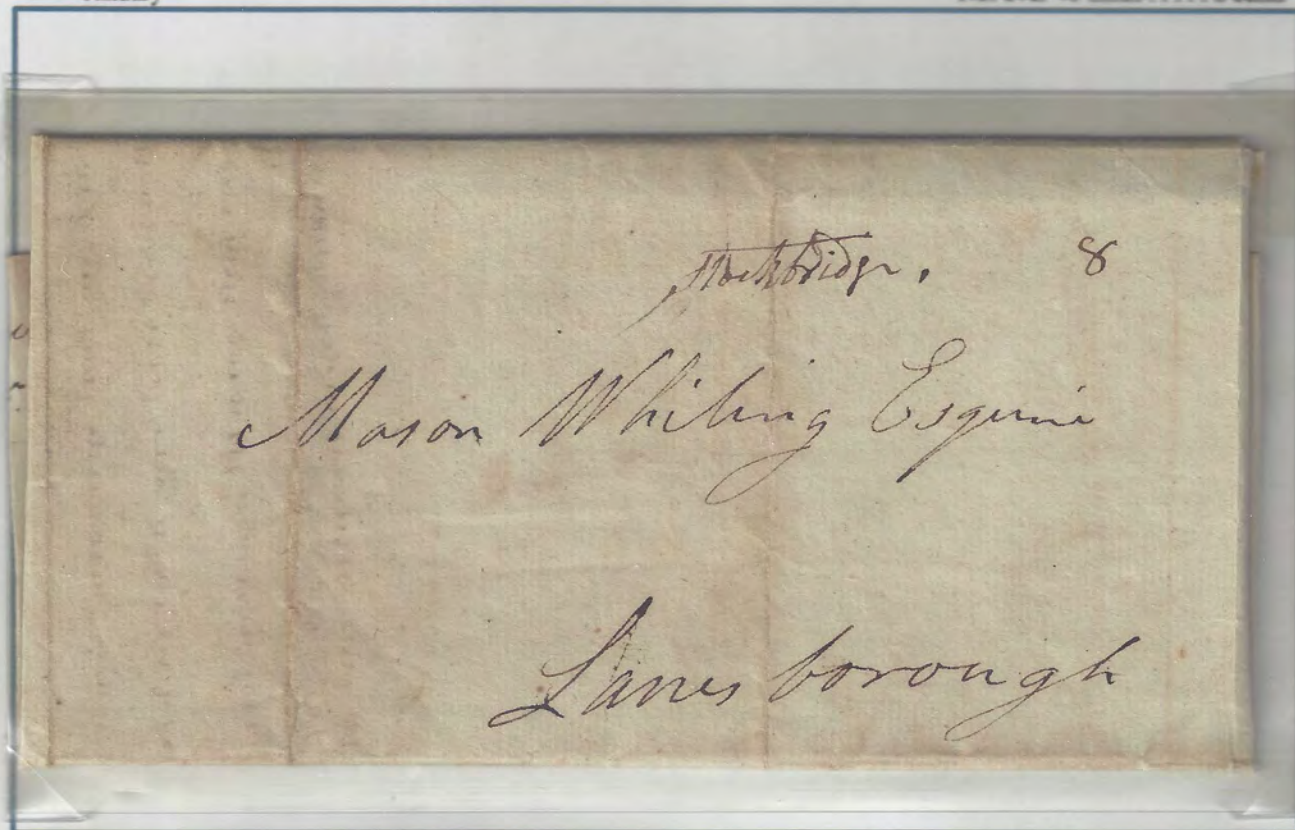 Stockbridge. 8
Mason Whiting Esquire
Lanesborough